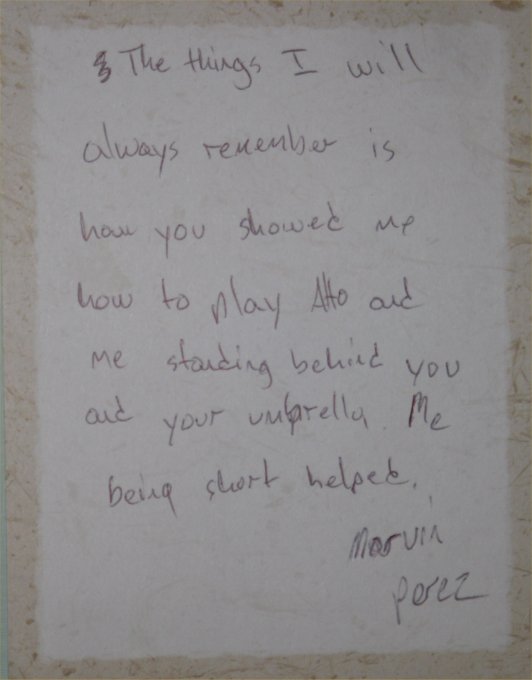 The things I will
always remember is
how you showed me
how to play Alto and
me standing behind you
and your umbrella. Me
being short helped.
Marvin
Perez